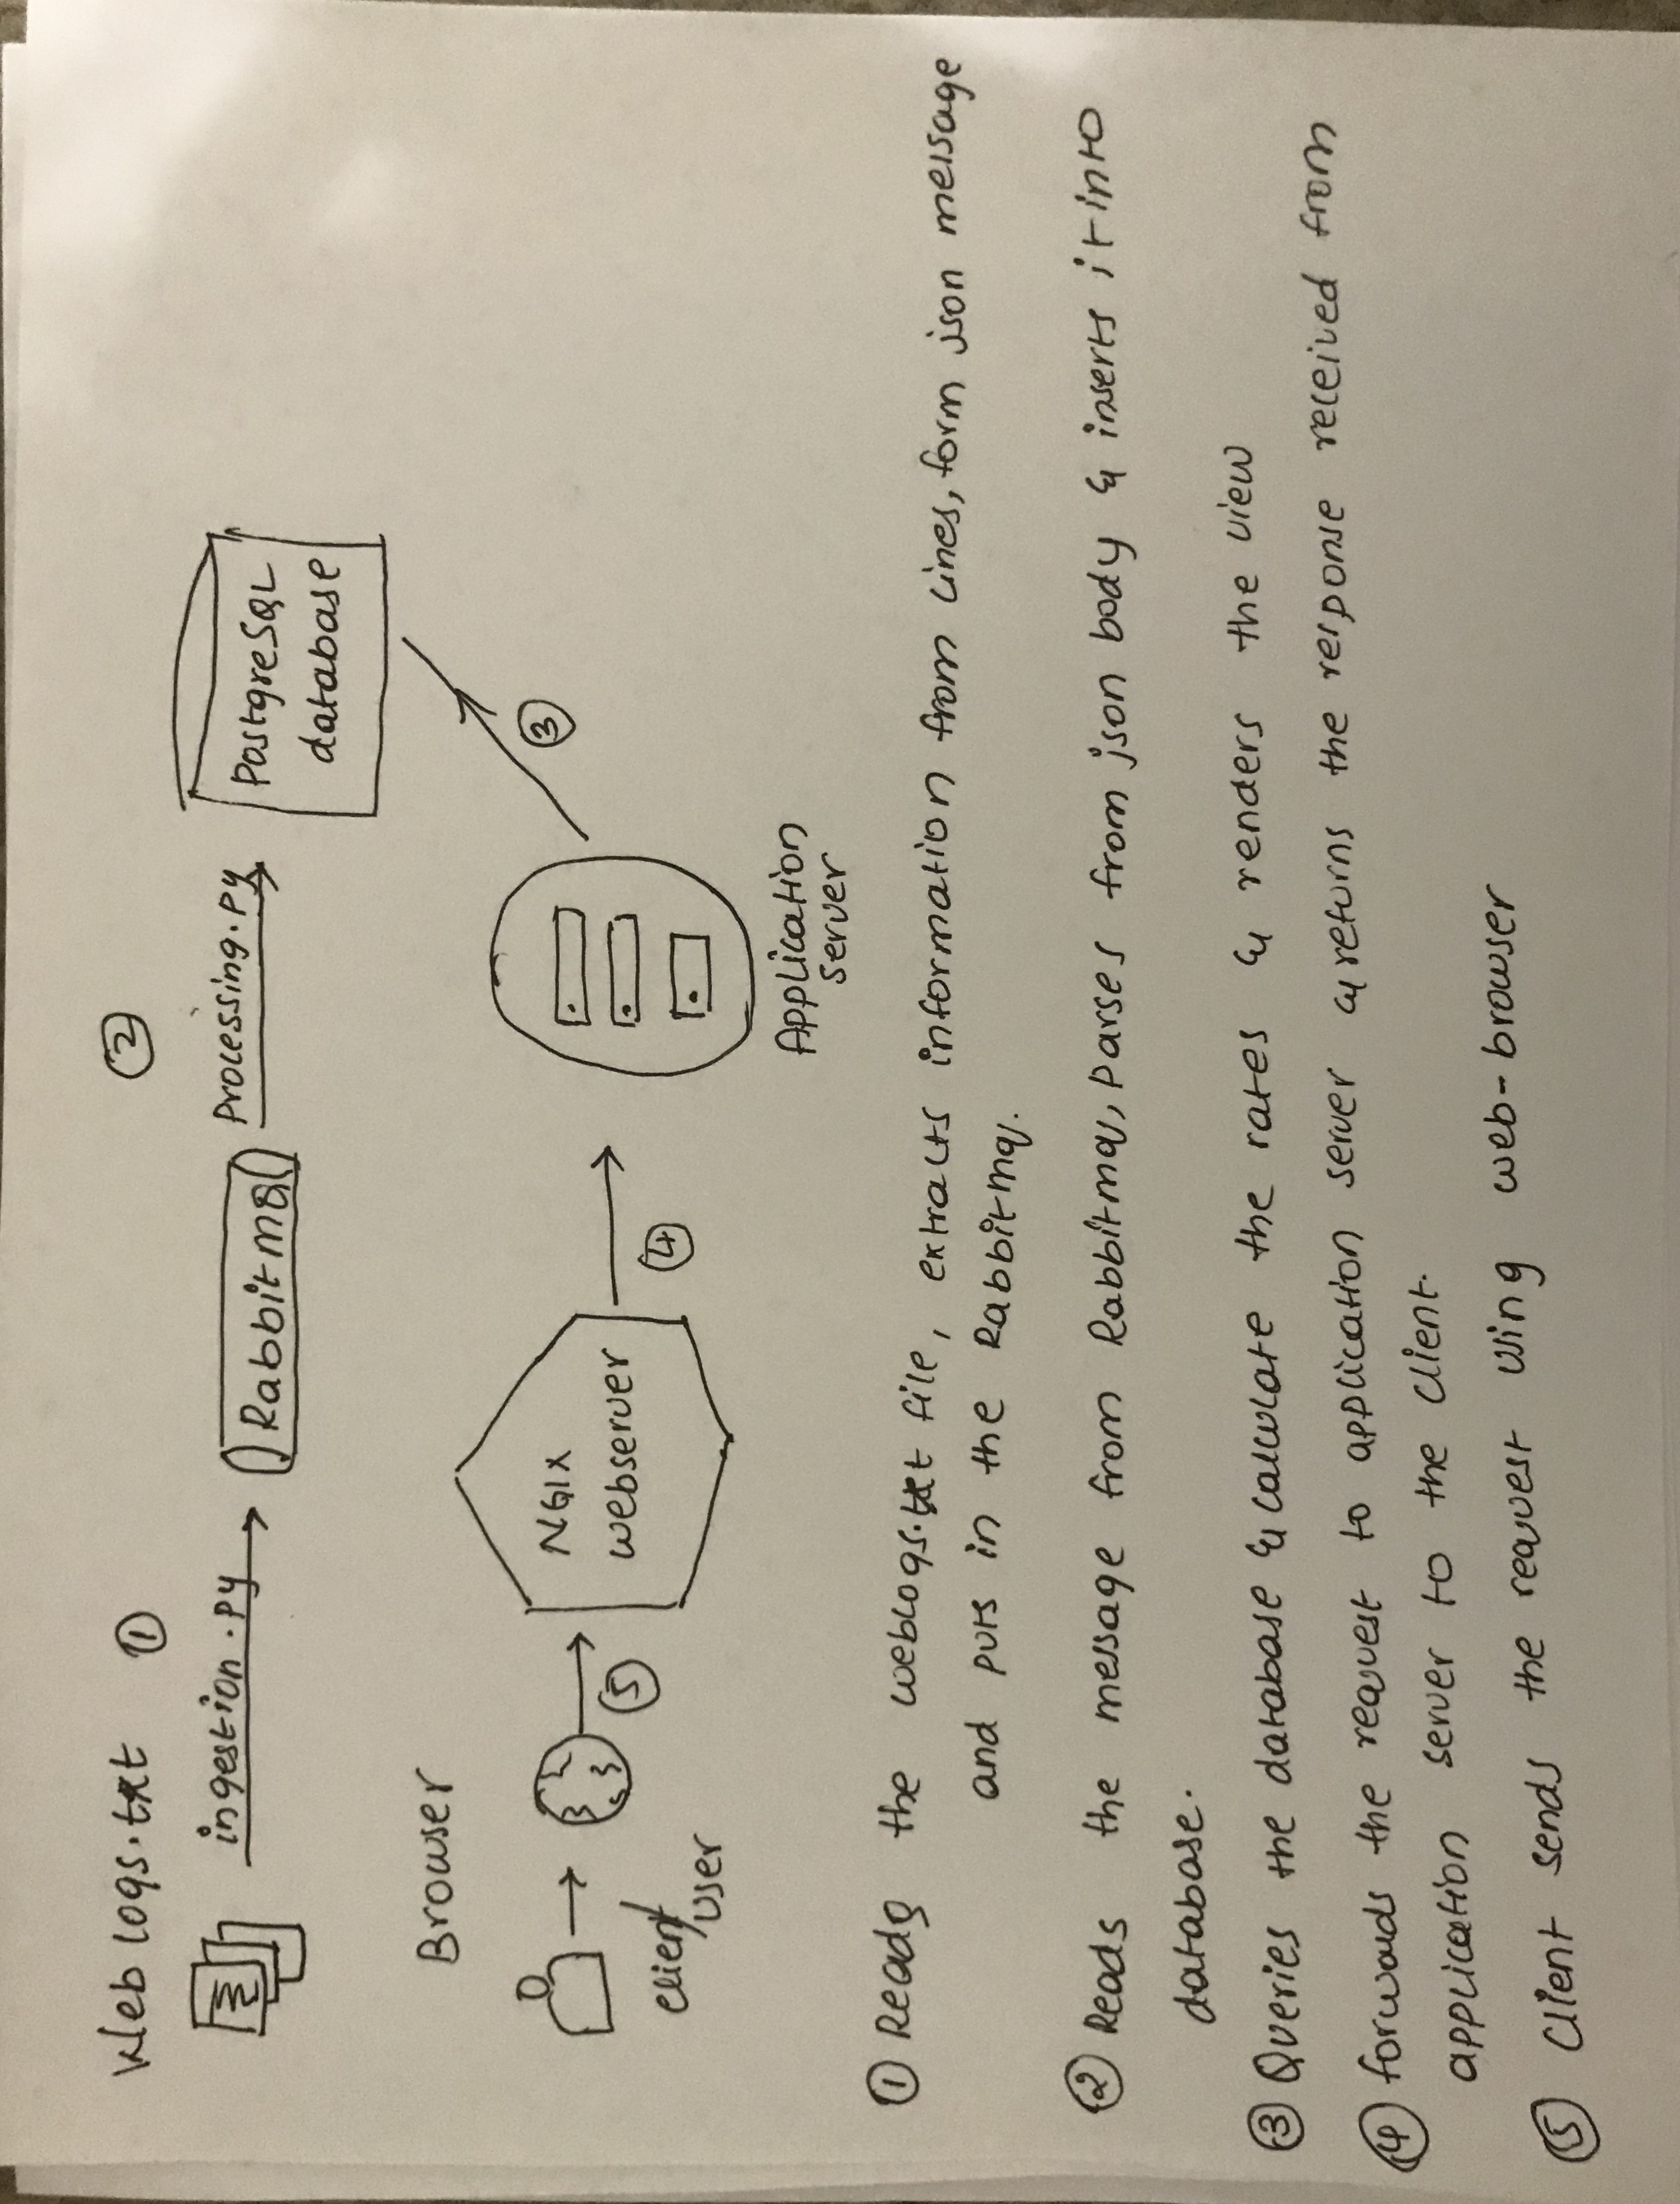 Web logs.txt ①
②
ingestion.py
RabbitMQ
Processing.py
PostgreSQL
database
Browser
③
NGIX
webserver
⑤
④
client/
user
Application
server
① Reads the weblogs.txt file, extracts information from lines, form json message
and puts in the Rabbitmq.
② Reads the message from Rabbitmq, Parses from json body & inserts it into
database.
③ Queries the database & calculate the rates & renders the view
④ forwards the request to application server & returns the response received from
application server to the client.
⑤ Client sends the request using web-browser